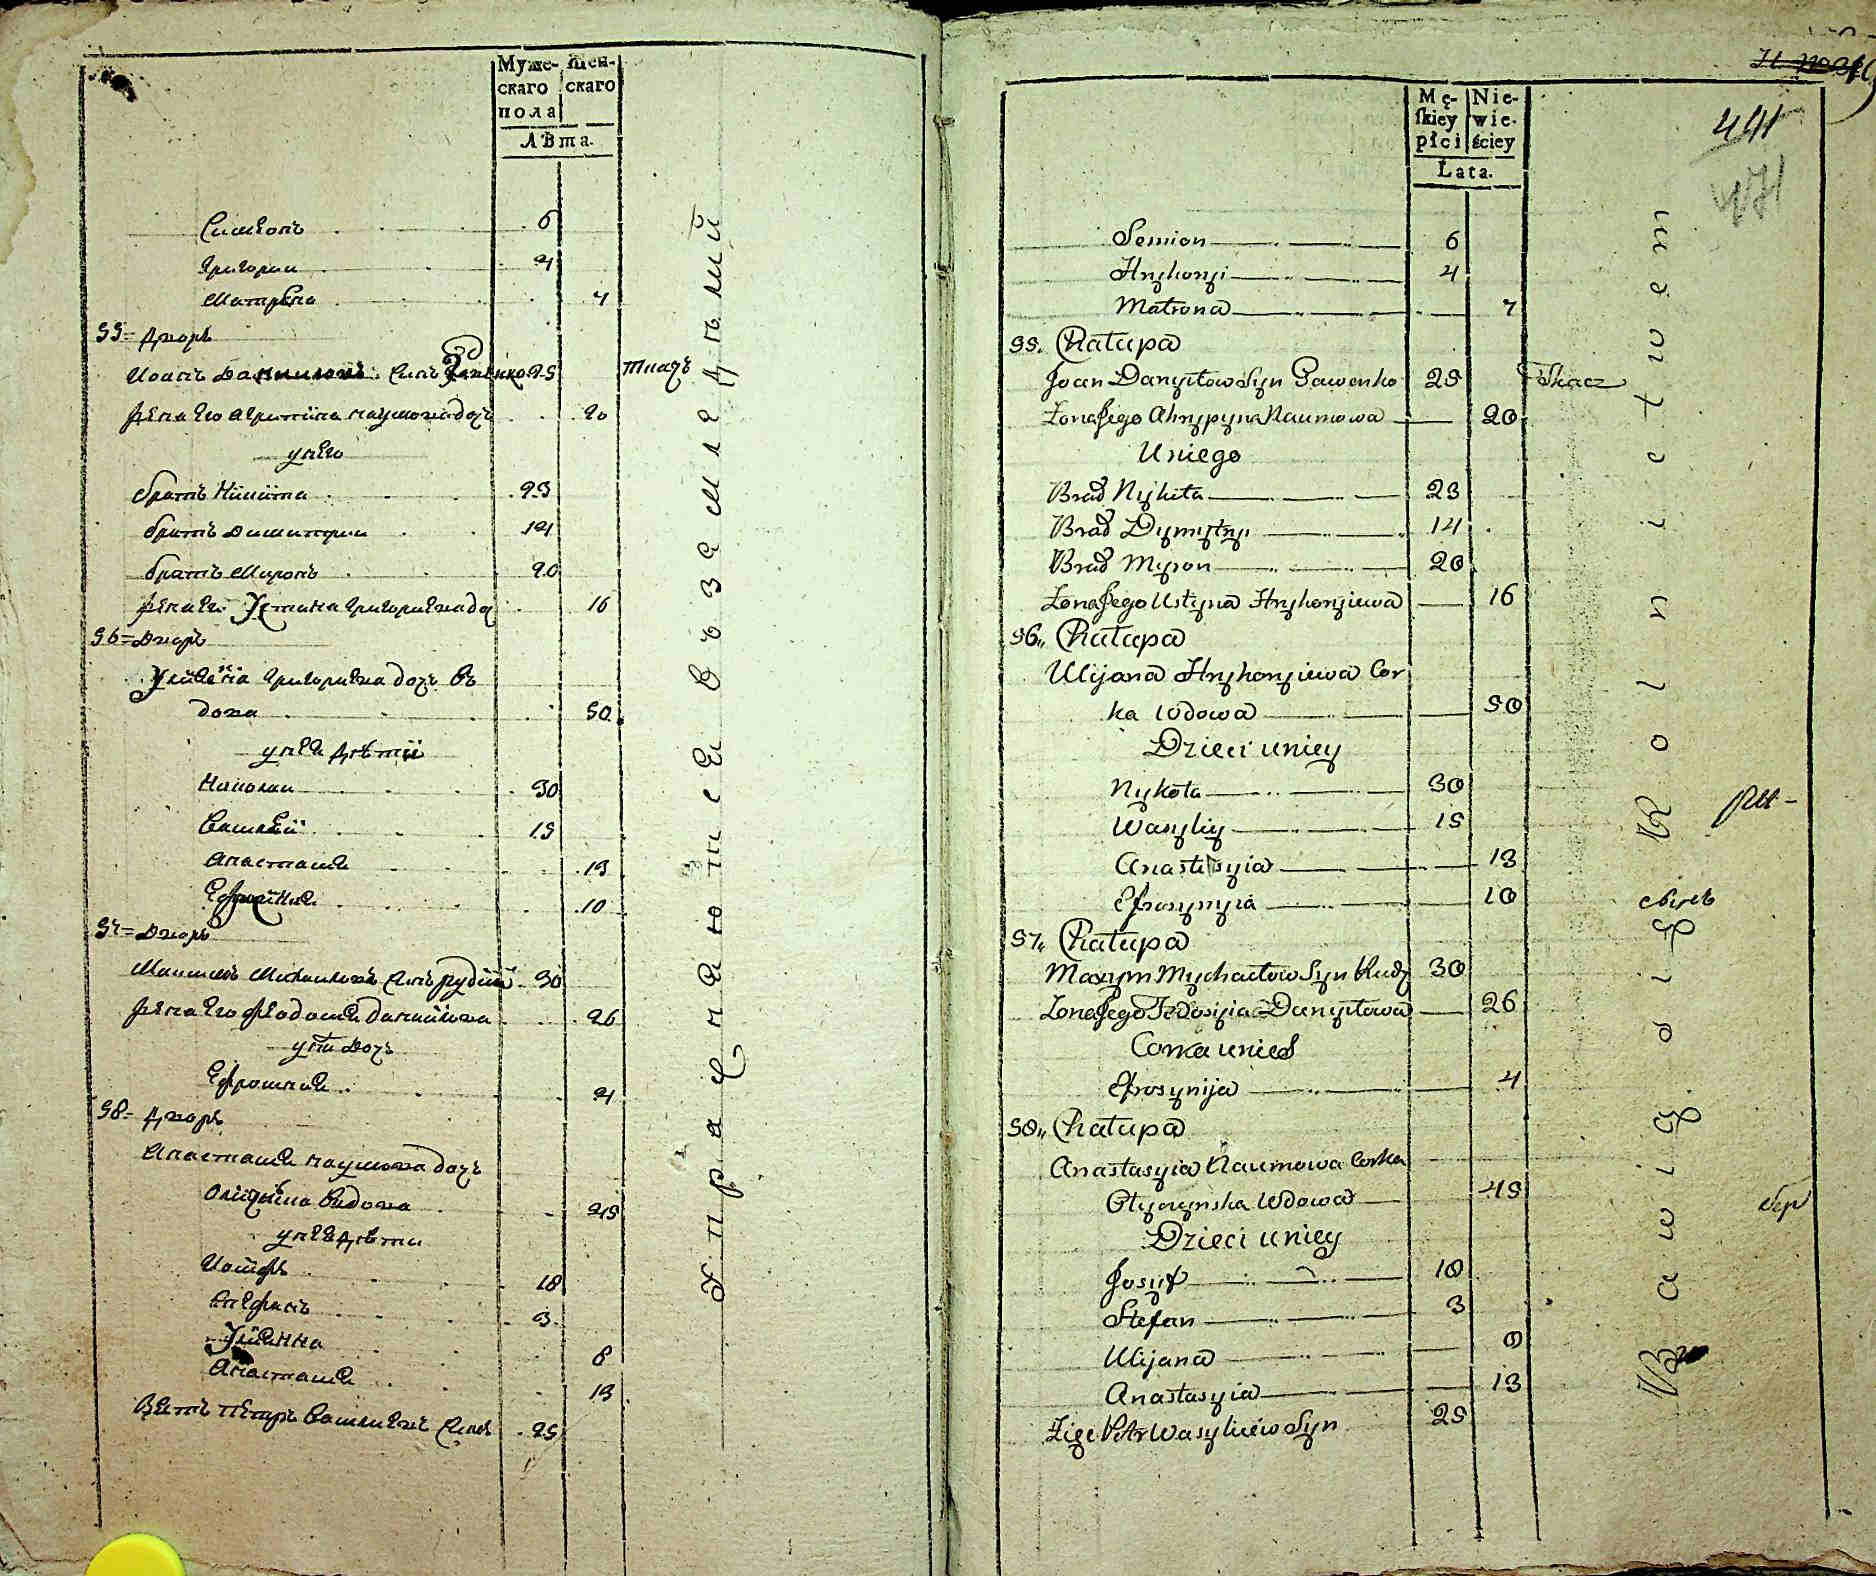 Муже-
скаго
пола
Жен-
скаго
ЛѢта.
Симеонъ 6
Григореи 4
Матрѣна 7
55 = Дворъ
Иоанъ Даниловъ Синъ 25 ткачъ
Жена Его Агрипина наумова доч 20
у него
братъ Никита 23
братъ Димитреи 14
братъ Миронъ 20
Жена Ег. Устина Григориева до 16
56 = Дворъ
Улиана Григориева доч въ
дова 50
у неи дѣти
Николаи 30
Василѣй 15
Анастасиа 13
Ефросиниа 10
57 = Дворъ
Максимъ Михаиловъ Синъ рудый 30
Жена Его Феодосиа Данилова 26
у них доч
Ефросиниа 4
58 = Дворъ
Анастасиа наумова доч
вдова 45
у неи дѣти
Иосифъ 18
Стефанъ 3
Улианна 8
Анастасиа 13
Зять Петръ Василиевъ Синъ 25
Упражняются въ земледѣлии
441
471
Mę-
skiey
płci
Nie-
wie-
ściey
Lata.
Semion 6
Hryhoryi 4
Matrona 7
55. Chałupa
Joan Danyłow Syn Pawenko 25 Tkacz
Zona Jego Ahrypyna Naumowa 20
U niego
Brad Nykita 23
Brad Dymytry 14
Brad Myron 20
Zona Jego Ustyna Hryhoryiewa 16
56„ Chałupa
Ulijana Hryhoryiewa Cor
ka Wdowa 50
Dzieci u niey
Nykoła 30
Wasyliy 15
Anastasyia 13
Efrosynyia 10
57„ Chałupa
Maxym Mychaiłow Syn Rudy 30
Zona Jego Fedosyia Danyłowa 26
Corka u nich
Efrosynija 4
58„ Chałupa
Anastasyia Naumowa Corka
Ołyczynska Wdowa 45
Dzieci u niey
Josyf 18
Stefan 3
Ulijana 8
Anastasyia 13
Zięć Petr Wasyliew Syn 25
Bawią się Rolnictwem